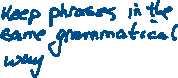 Keep phrases in the
same grammatical
way